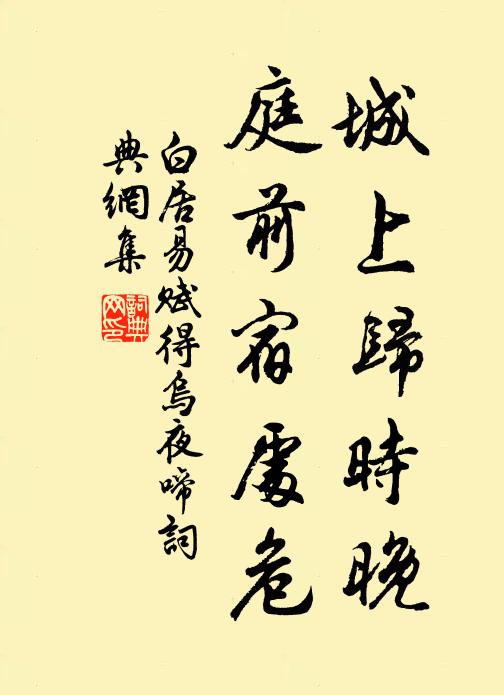 城上歸時晚
庭前宿處危
白居易賦得烏夜啼詞
典網集
詞典
网印